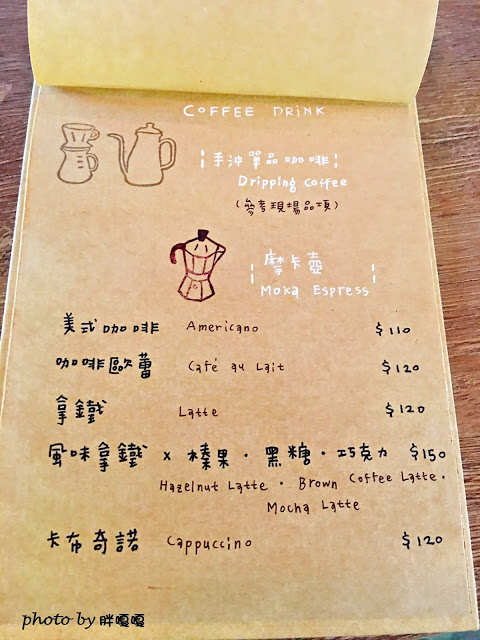 COFFEE DRINK
手沖單品咖啡
Dripping Coffee
(參考現場品項)
摩卡壺
Moka Espress
美式咖啡 Americano $110
咖啡歐蕾 Café au Lait $120
拿鐵 Latte $120
風味拿鐵 x 榛果・黑糖・巧克力 $150
Hazelnut Latte · Brown Coffee Latte ·
Mocha Latte
卡布奇諾 Cappuccino $120
photo by 胖嘎嘎